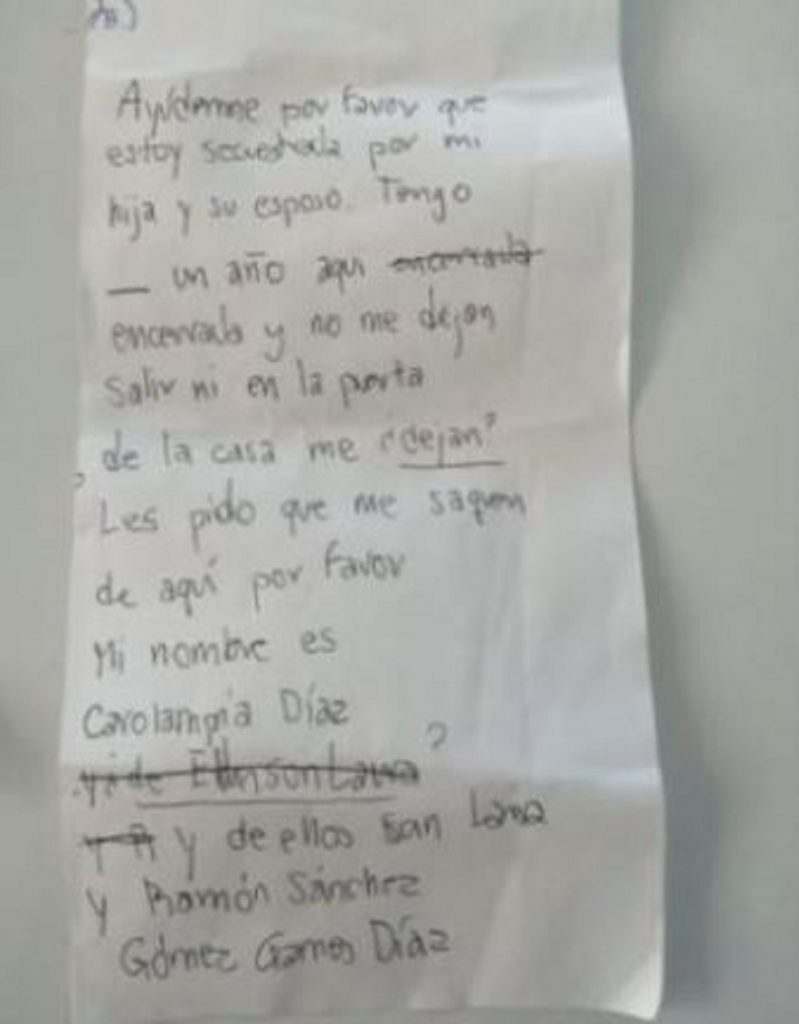 Ayúdenme por favor que
estoy secuestrada por mi
hija y su esposo. Tengo
_ un año aqui
encerrada y no me dejan
Salir ni en la puerta
de la casa me ¿dejan?
Les pido que me saquen
de aquí por favor
Mi nombre es
Carolampia Díaz
?
y de ellos san
y Ramón Sánchez
Gómez Díaz